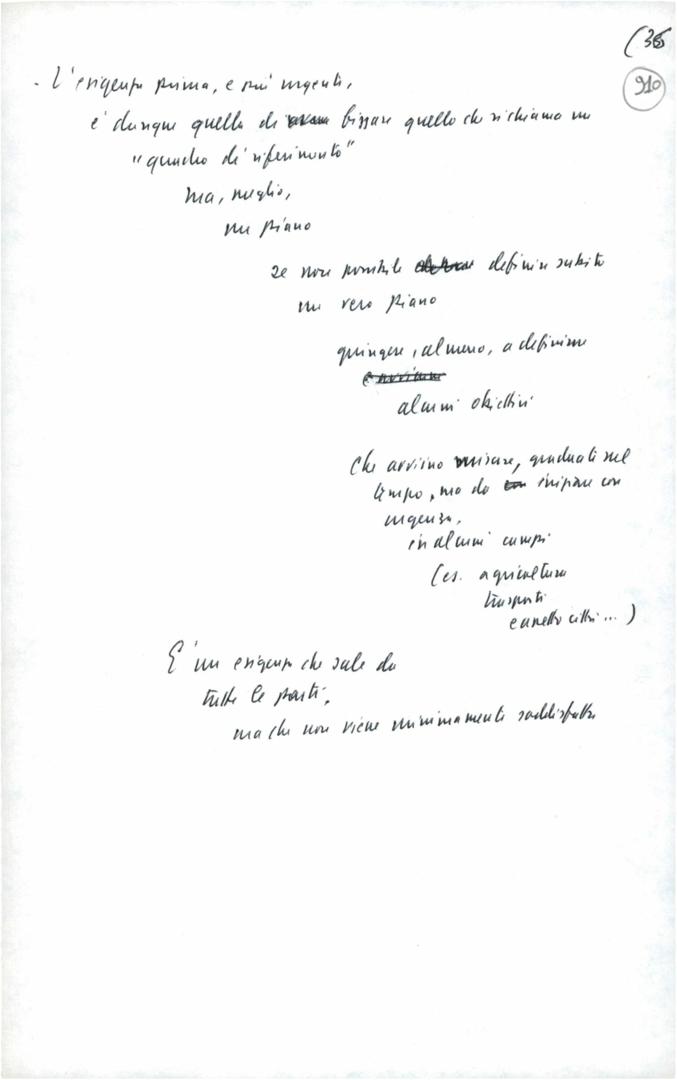 (35
910
- L'esigenza prima, e più urgente,
è dunque quella di fissare quello che si chiama un
"quadro di riferimento"
ma, meglio,
un piano
se non possibile definire subito
un vero piano
giungere, almeno, a definire
alcuni obiettivi
che avviino misure, graduali nel
tempo, ma da iniziare con
urgenza,
in alcuni campi
(es. agricoltura
trasporti
assetto città... )
E' un esigenza che sale da
tutte le parti,
ma che non viene minimamente soddisfatta